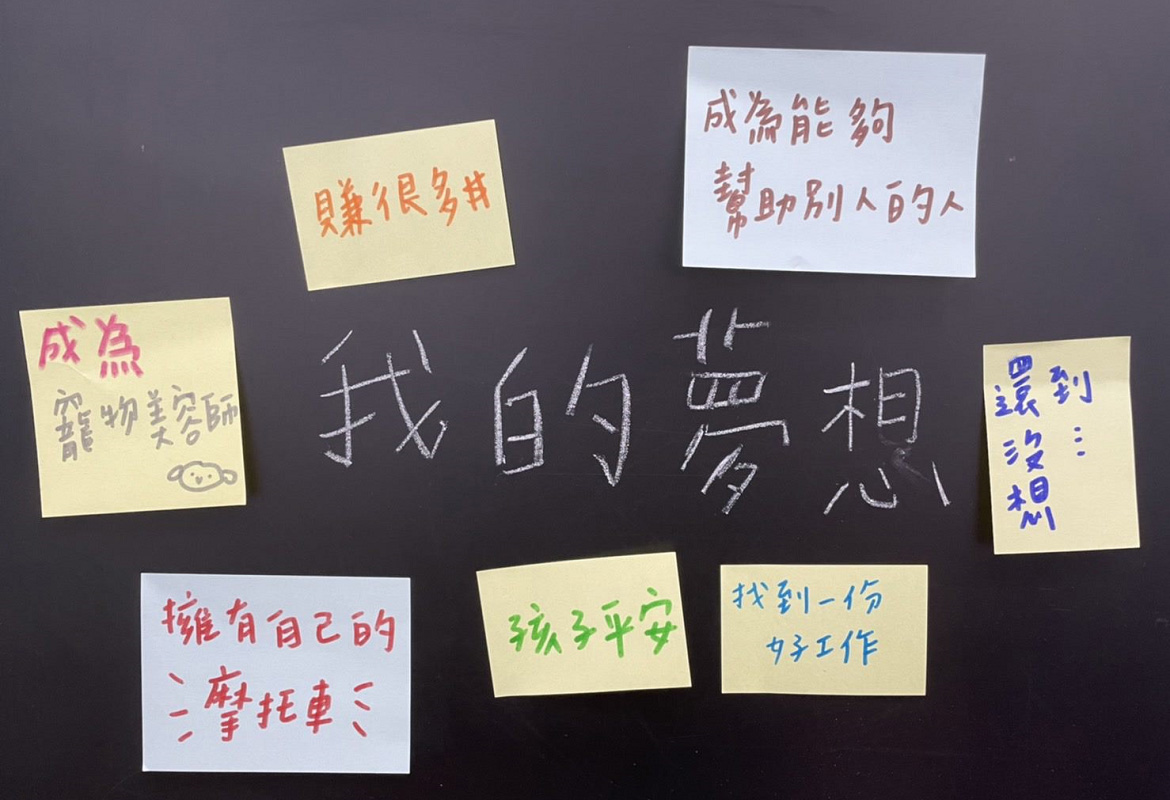 成為能夠
幫助別人的人
賺很多#
成為
寵物美容師
我的夢想
還沒想
到...
擁有自己的
摩托車
孩子平安
找到一份
好工作